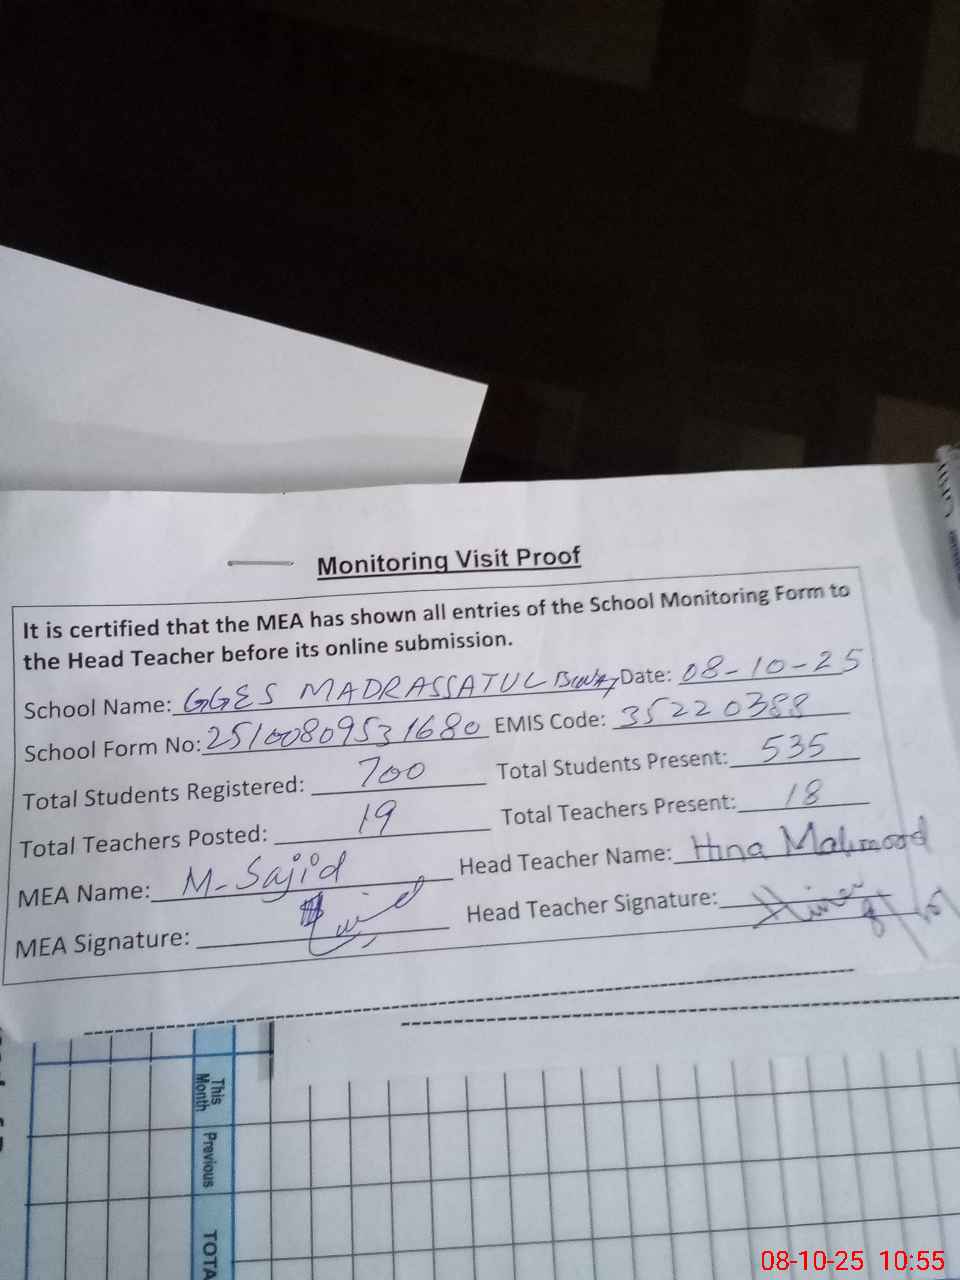 Monitoring Visit Proof
It is certified that the MEA has shown all entries of the School Monitoring Form to
the Head Teacher before its online submission.
School Name: GGES MADRASSATUL Date: 08-10-25
School Form No: 25100809531680 EMIS Code: 35220388
Total Students Registered: 700 Total Students Present: 535
Total Teachers Posted: 19 Total Teachers Present: 18
MEA Name: M-Sajid Head Teacher Name: Hina Mahmood
MEA Signature: Head Teacher Signature:
This
Month
Previous
08-10-25 10:55